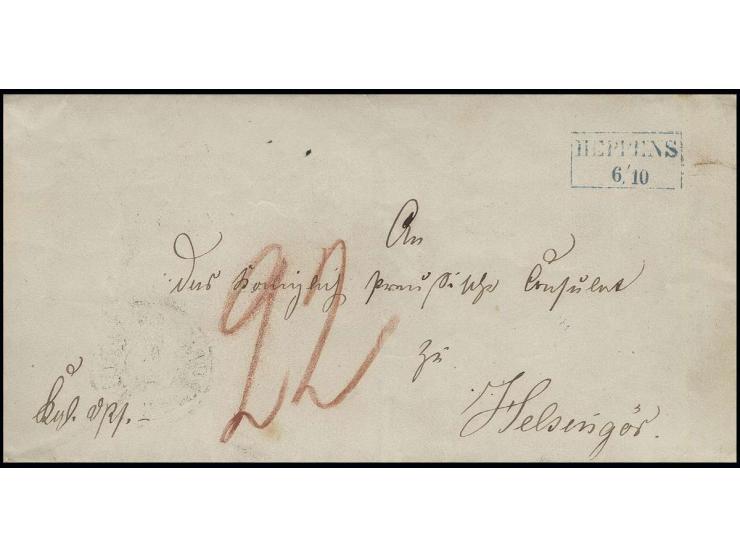 HEPPENS
6/10
An
das Königlich Preußische Consulat
zu
Helsingör.
22